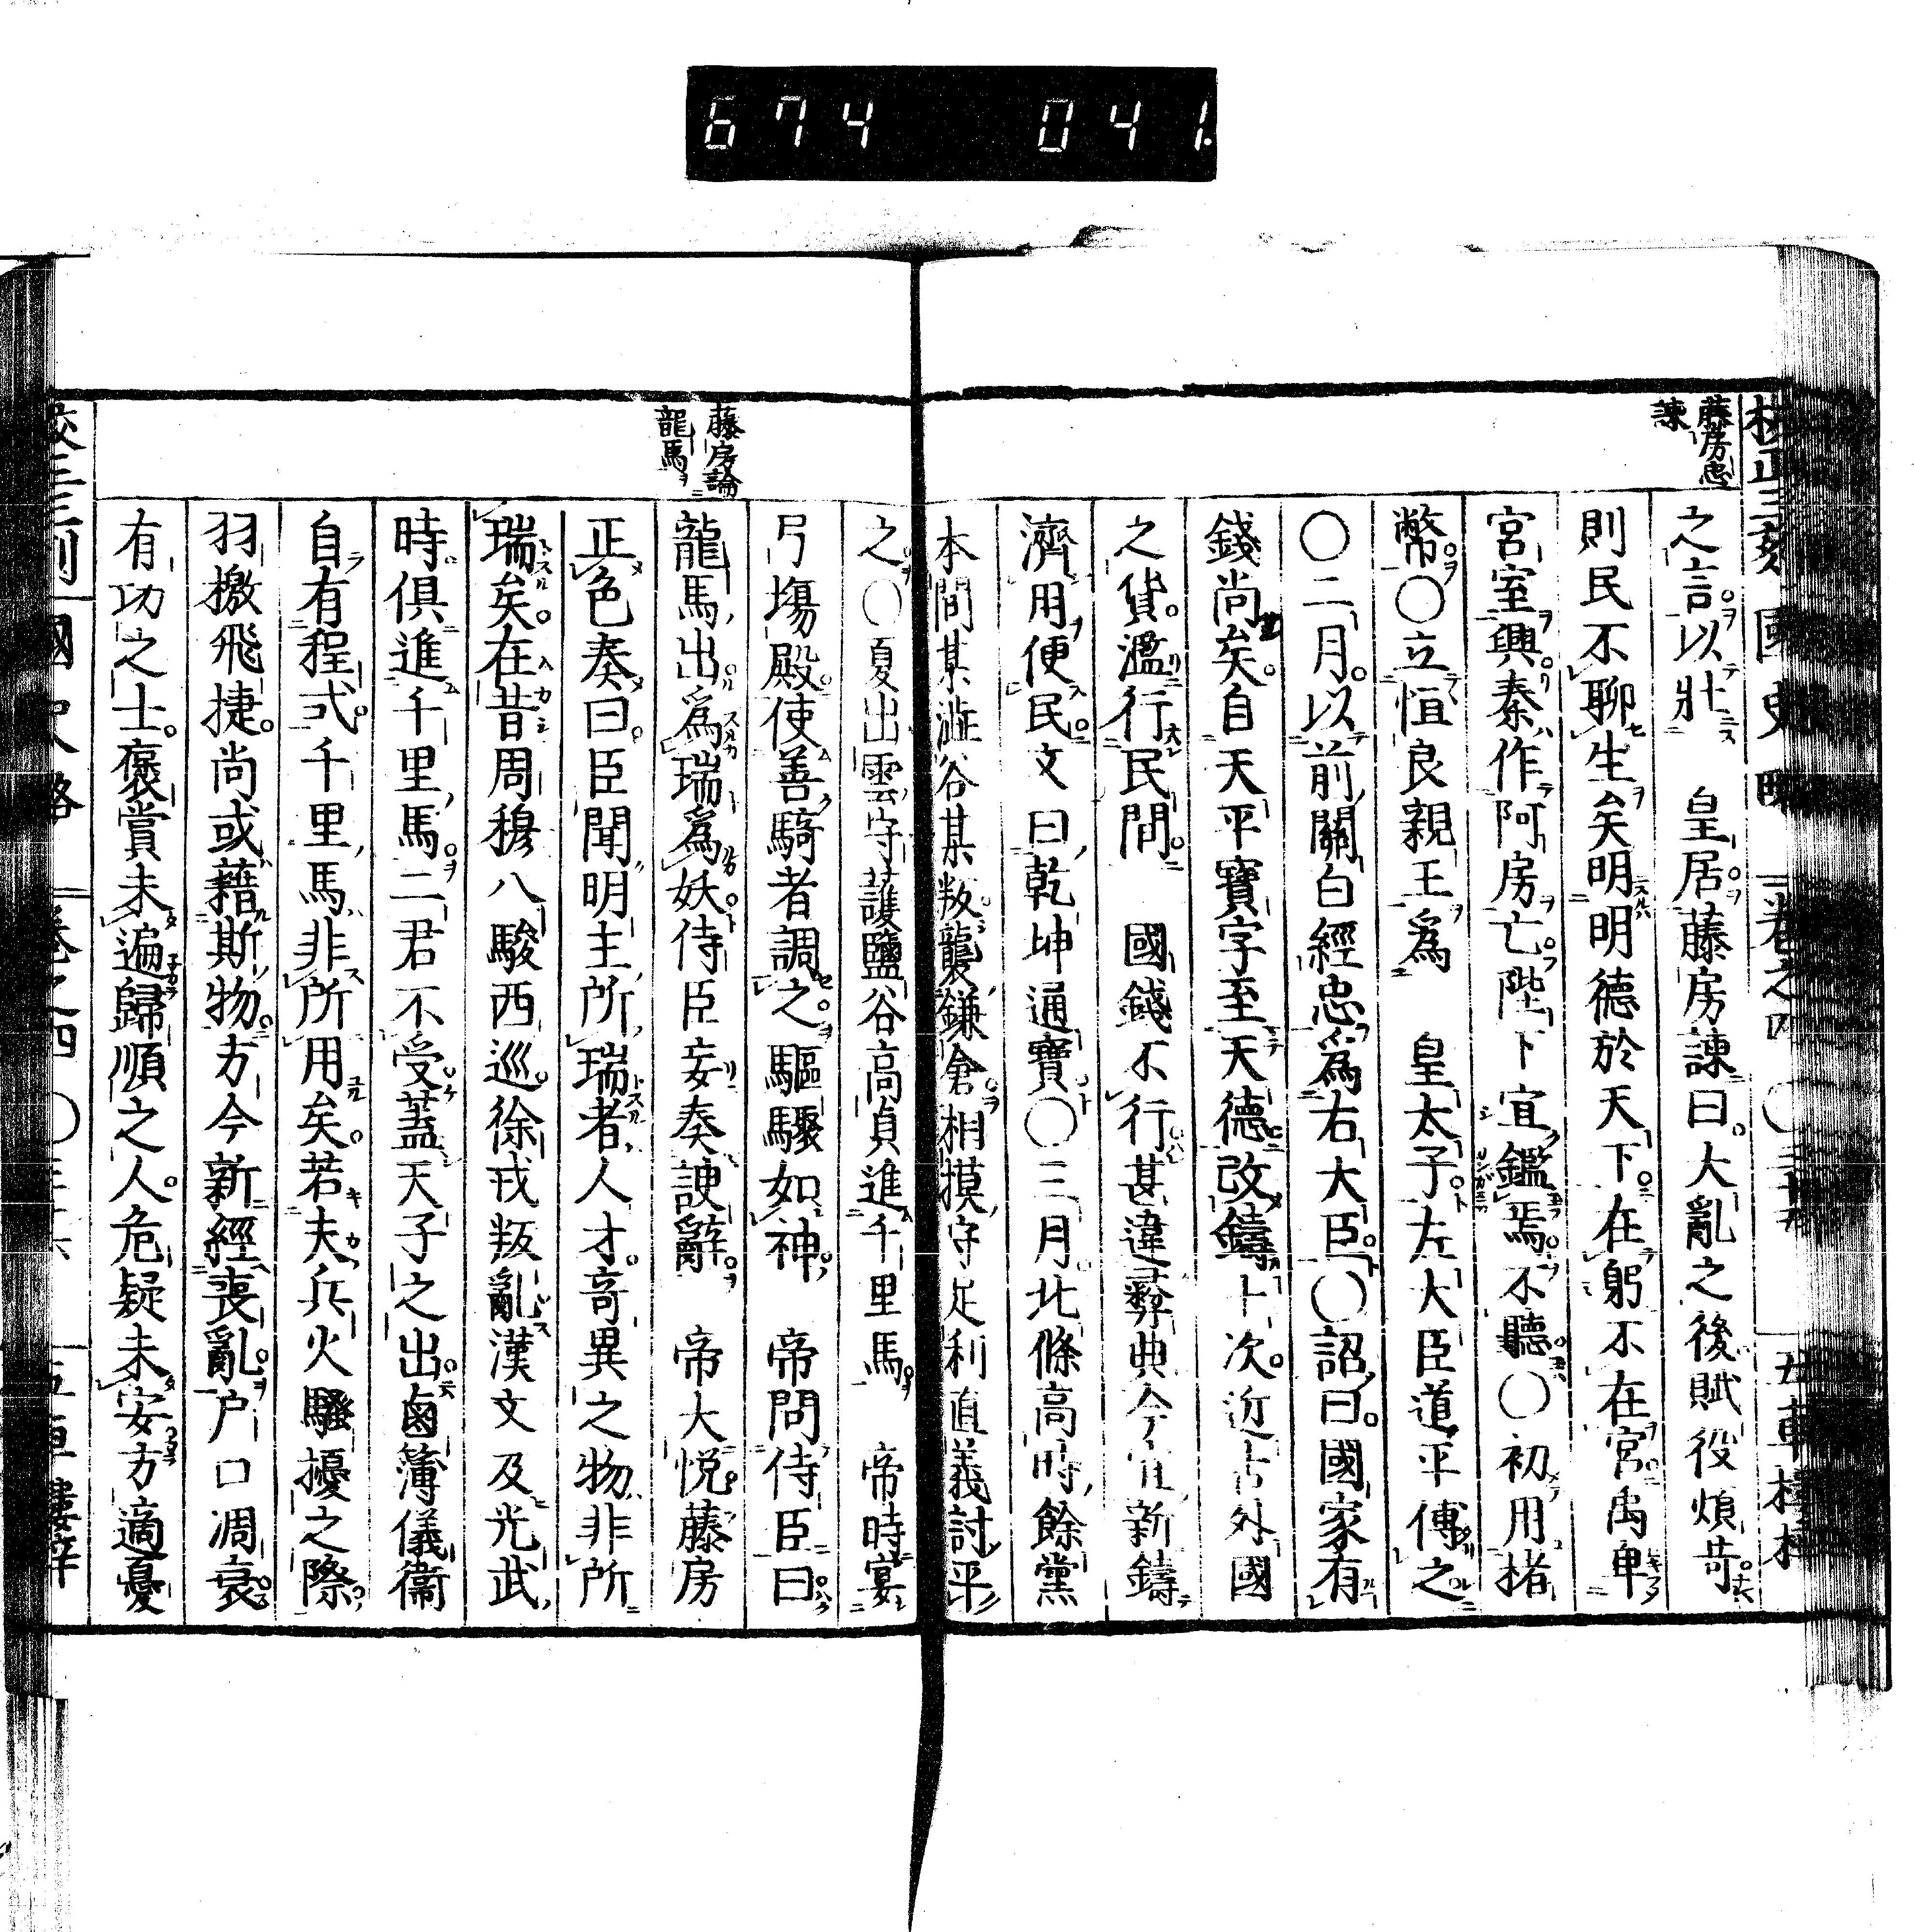 674 041.
校正三刻 國史畧 卷之四 〇三十五 五車樓梓
藤房忠
諫
之言以壯 皇居藤房諫曰大亂之後賦役煩苛
則民不聊生矣明明德於天下在躬不在宮禹卑
宮室興秦作阿房亡陛下宜鑑焉不聽〇初用楮
幣〇立恒良親王爲 皇太子左大臣道平傳之
〇二月以前關白經忠爲右大臣〇詔曰國家有
錢尚矣自天平寶字至天德改鑄十次近古外國
之貨濫行民間 國錢不行甚違彛典今宜新鑄
濟用便民文曰乾坤通寶〇三月北條高時餘黨
本間某澁谷某叛襲鎌倉相摸守足利直義討平
之〇夏出雲守護鹽谷高貞進千里馬 帝時宴
弓塲殿使善騎者調之驅驟如神 帝問侍臣曰
藤房論
龍馬ヲ
龍馬出爲瑞爲妖侍臣妄奏諛辭 帝大悅藤房
正色奏曰臣聞明主所瑞者人才竒異之物非所
瑞矣在昔周穆八駿西巡徐戎叛亂漢文及光武
時俱進千里馬二君不受蓋天子之出鹵簿儀衞
自有程式千里馬非所用矣若夫兵火騷擾之際
羽檄飛捷尚或藉斯物方今新經喪亂户口凋衰
有功之士襃賞未遍歸順之人危疑未安方適憂
國史略 卷之四 五車樓梓